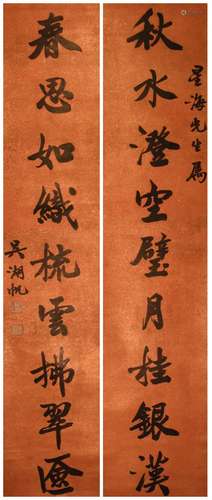 星海先生属
秋水澄空璧月挂銀漢
春思如織梳雲拂翠奩
吳湖帆